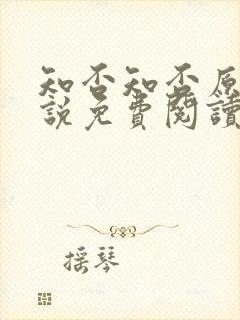 知否知否原
說免費閱讀
摇琴